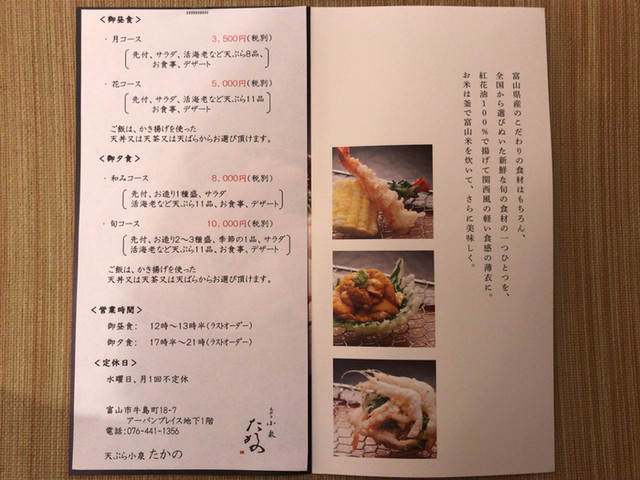 ＜御昼食＞
・月コース　3,500円(税別)
先付、サラダ、活海老など天ぷら8品、
お食事、デザート
・花コース　5,000円(税別)
先付、サラダ、活海老など天ぷら11品
お食事、デザート
ご飯は、かき揚げを使った
天丼又は天茶又は天ばらからお選び頂けます。
＜御夕食＞
・和みコース　8,000円(税別)
先付、お造り1種盛、サラダ
活海老など天ぷら11品、お食事、デザート
・旬コース　10,000円(税別)
先付、お造り2～3種盛、季節の1品、サラダ
活海老など天ぷら11品、お食事、デザート
ご飯は、かき揚げを使った
天丼又は天茶又は天ばらからお選び頂けます。
＜営業時間＞
御昼食：　12時～13時半(ラストオーダー)
御夕食：　17時半～21時(ラストオーダー)
＜定休日＞
水曜日、月1回不定休
富山市牛島町18-7
アーバンプレイス地下1階
電話：076-441-1356
天ぷら小泉 たかの
天ぷら 小泉
たかの
富山県産のこだわりの食材はもちろん、
全国から選びぬいた新鮮な旬の食材の一つひとつを、
紅花油100％で揚げて関西風の軽い食感の薄衣に。
お米は釜で富山米を炊いて、さらに美味しく。